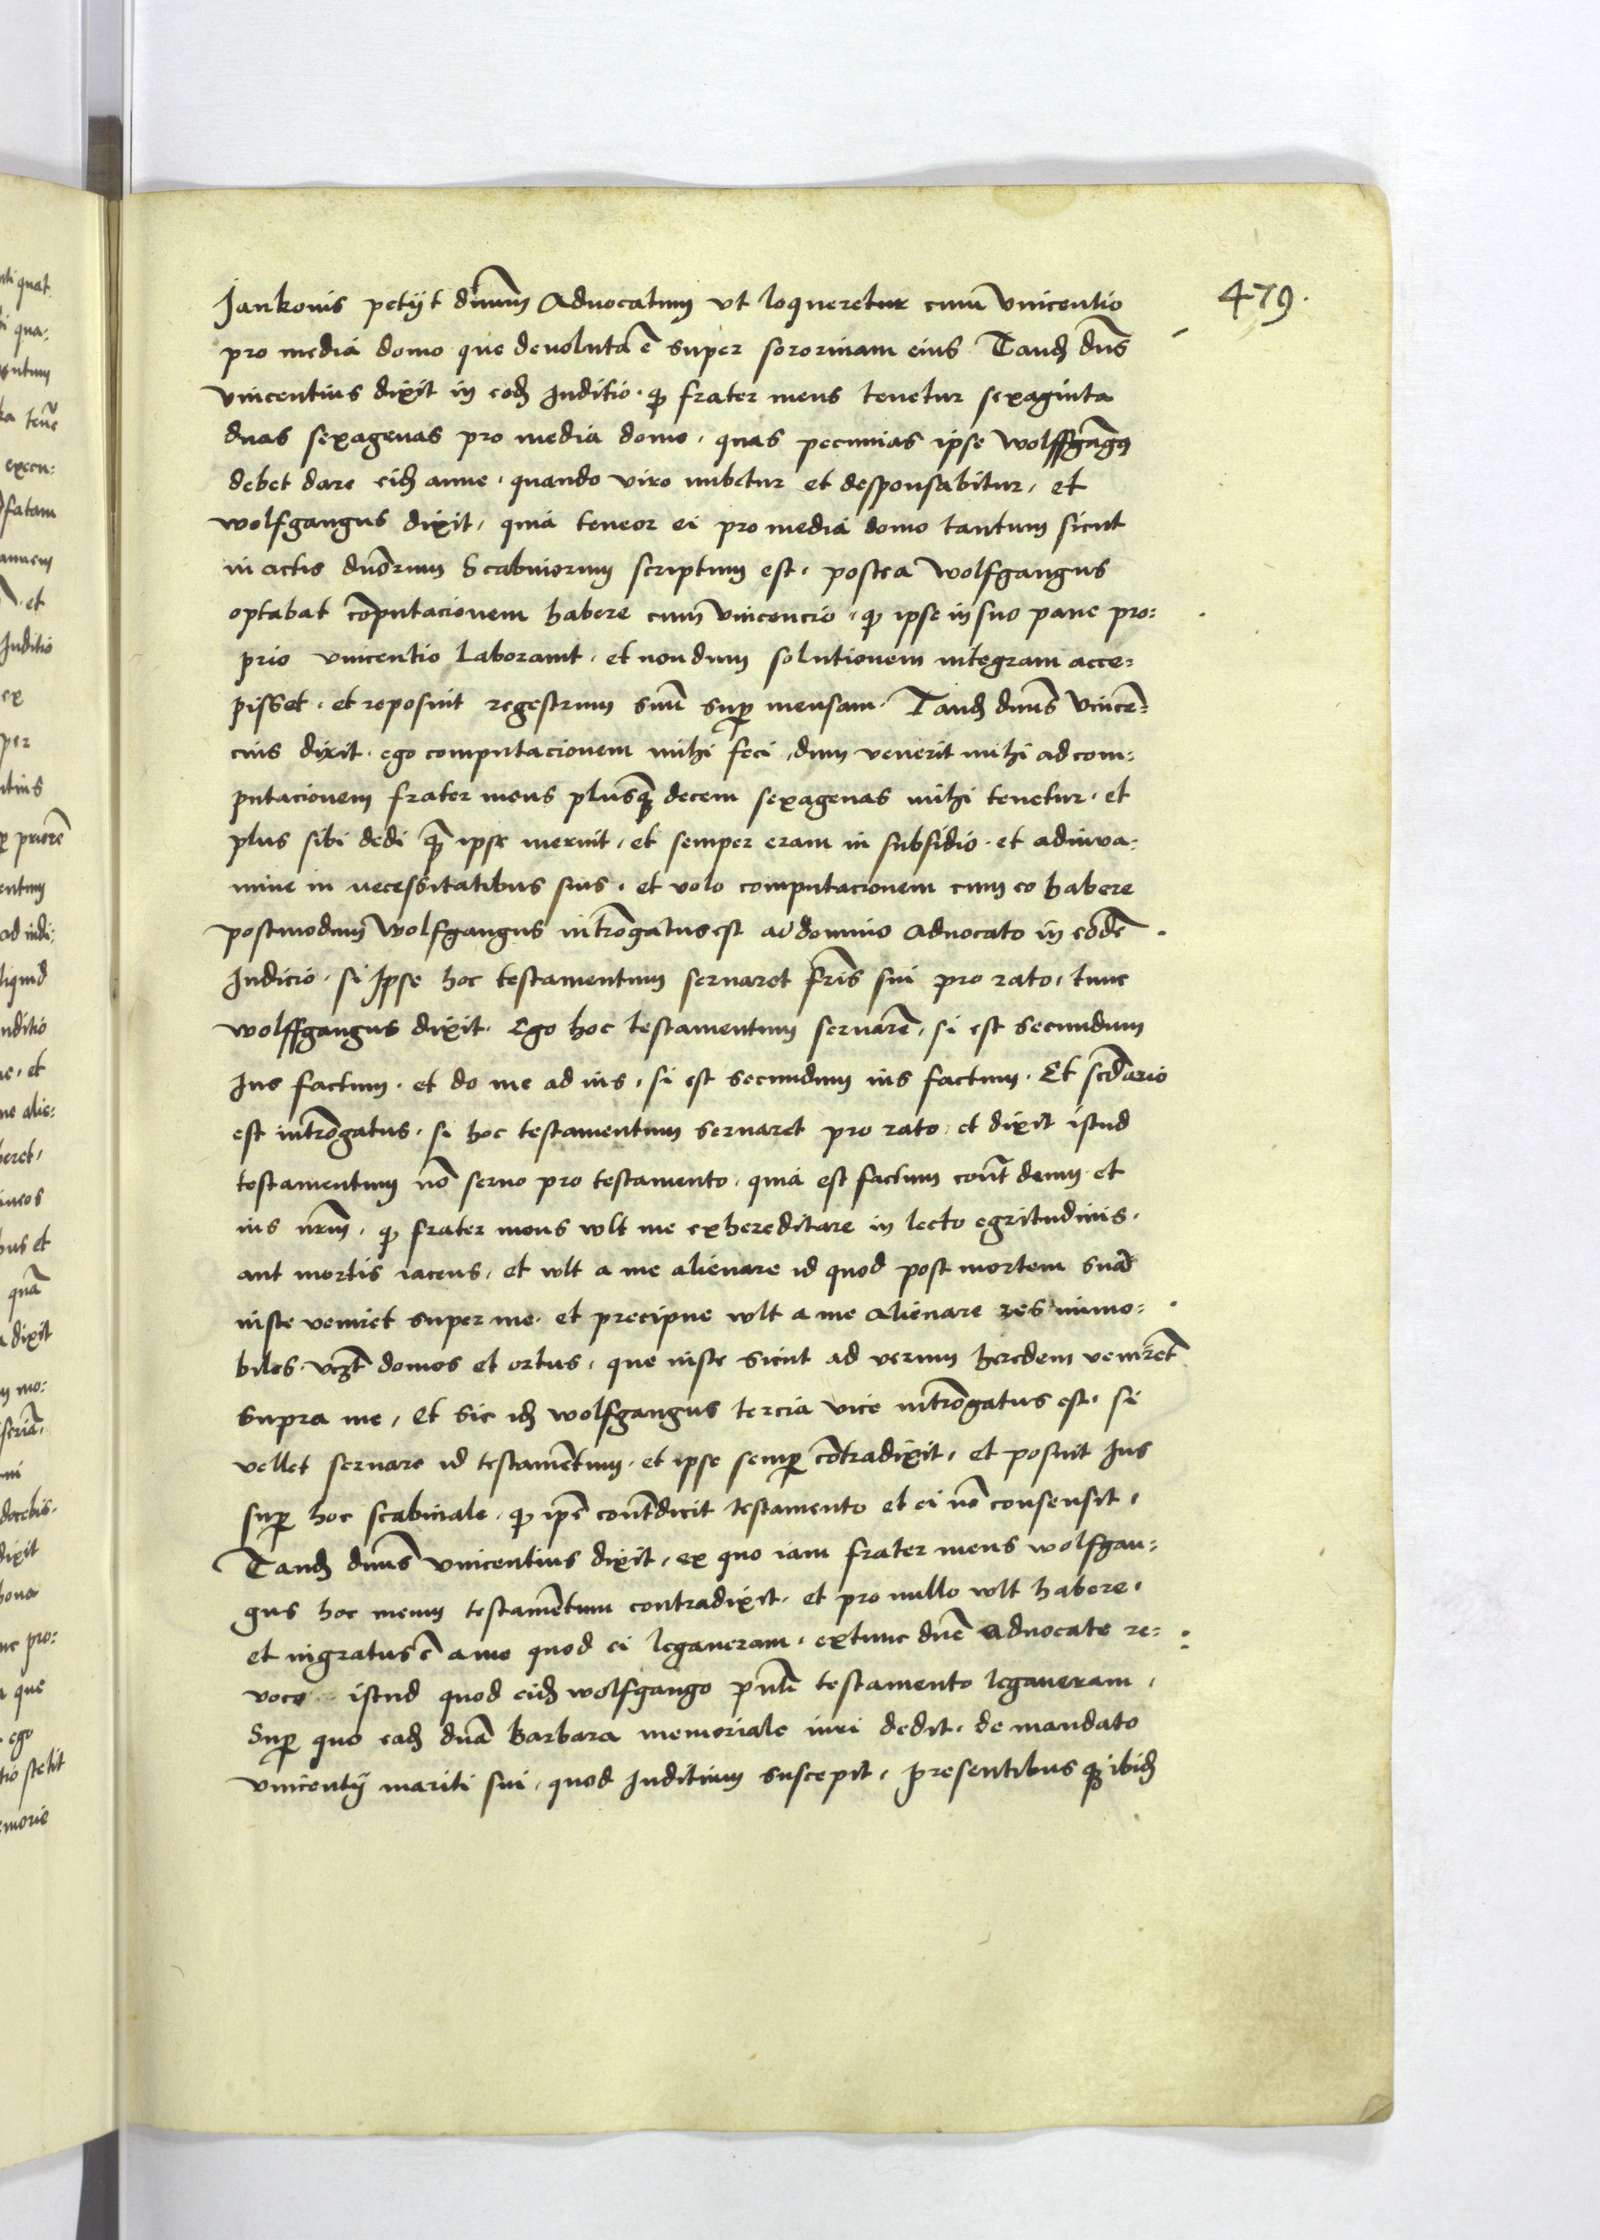 479.
Jankonis petijt dnum Aduocatum vt loqueretur cum vincentio
pro media domo que deuoluta ē super sororinam eius Tandē dns
vincentius dixit in eodē Juditio · qʒ frater meus tenetur sexaginta
duas sexagenas pro media domo · quas pecunias ipse wolffgāgus
debet dare eidē anne · quando viro nubetur et desponsabitur, et
wolfgangus dixit, quia teneor ei pro media domo tantum sicut
in actis dnōrum Scabinorum scriptum est · postea wolfgangus
optabat cōputacionem habere cum vincencio · qʒ ipse in suo pane pro:
prio vincentio laborauit · et nondum solutionem integram acce:
pisset · et reposuit regestrum suū supꝑ mensam · Tandē dnus vincē:
cius dixit · ego computacionem mihi feci, dum venerit mihi ad com:
putacionem frater meus plusqʒ decem sexagenas mihi tenetur · et
plus sibi dedi qʒ ipse meruit, et semper eram in subsidio · et adiuua:
mine in necessitatibus suis · et volo computacionem cum eo habere
postmodum wolfgangus intrōgatus est a domino Aduocato in eodē
Judicio · si Jpse hoc testamentum seruaret fris sui pro rato, tunc
wolffgangus dixit · Ego hoc testamentum seruarē, si est secundum
Jus factum · et do me ad ius, si est secundum ius factum · Et scdario
est intrōgatus · si hoc testamentum seruaret pro rato · et dixit istud
testamentum nō seruo pro testamento · quia est factum cont deum et
ius nrm, qʒ frater meus wlt me exhereditare in lecto egritudinis ·
aut mortis iacens, et wlt a me alienare id quod post mortem suā
iuste veniret super me · et precipue wlt a me alienare res immo:
biles · vcʒt domos et ortus, que iuste sicut ad verum heredem venirēt
supra me, Et sic idē wolfgangus tercia vice intrōgatus est · si
vellet seruare id testamētum · et ipse sempꝑ cōtradixit, et posuit Jus
supꝑ hoc scabinale · qʒ ipē contdicit testamento et ei nō consensit,
Tandē dnus vincentius dixit, ex quo iam frater meus wolfgan:
gus hoc meum testamētum contradixit · et pro nullo wlt habere,
et ingratus ē a me quod ei legaueram · extunc dnē aduocate re:
uoco istud quod eidē wolfgango pnti testamento legaueram,
Supꝑ quo eadē dnā Barbara memoriale iuri dedit · de mandato
vincentij mariti sui, quod Juditium suscepit, presentibus qʒ ibidē